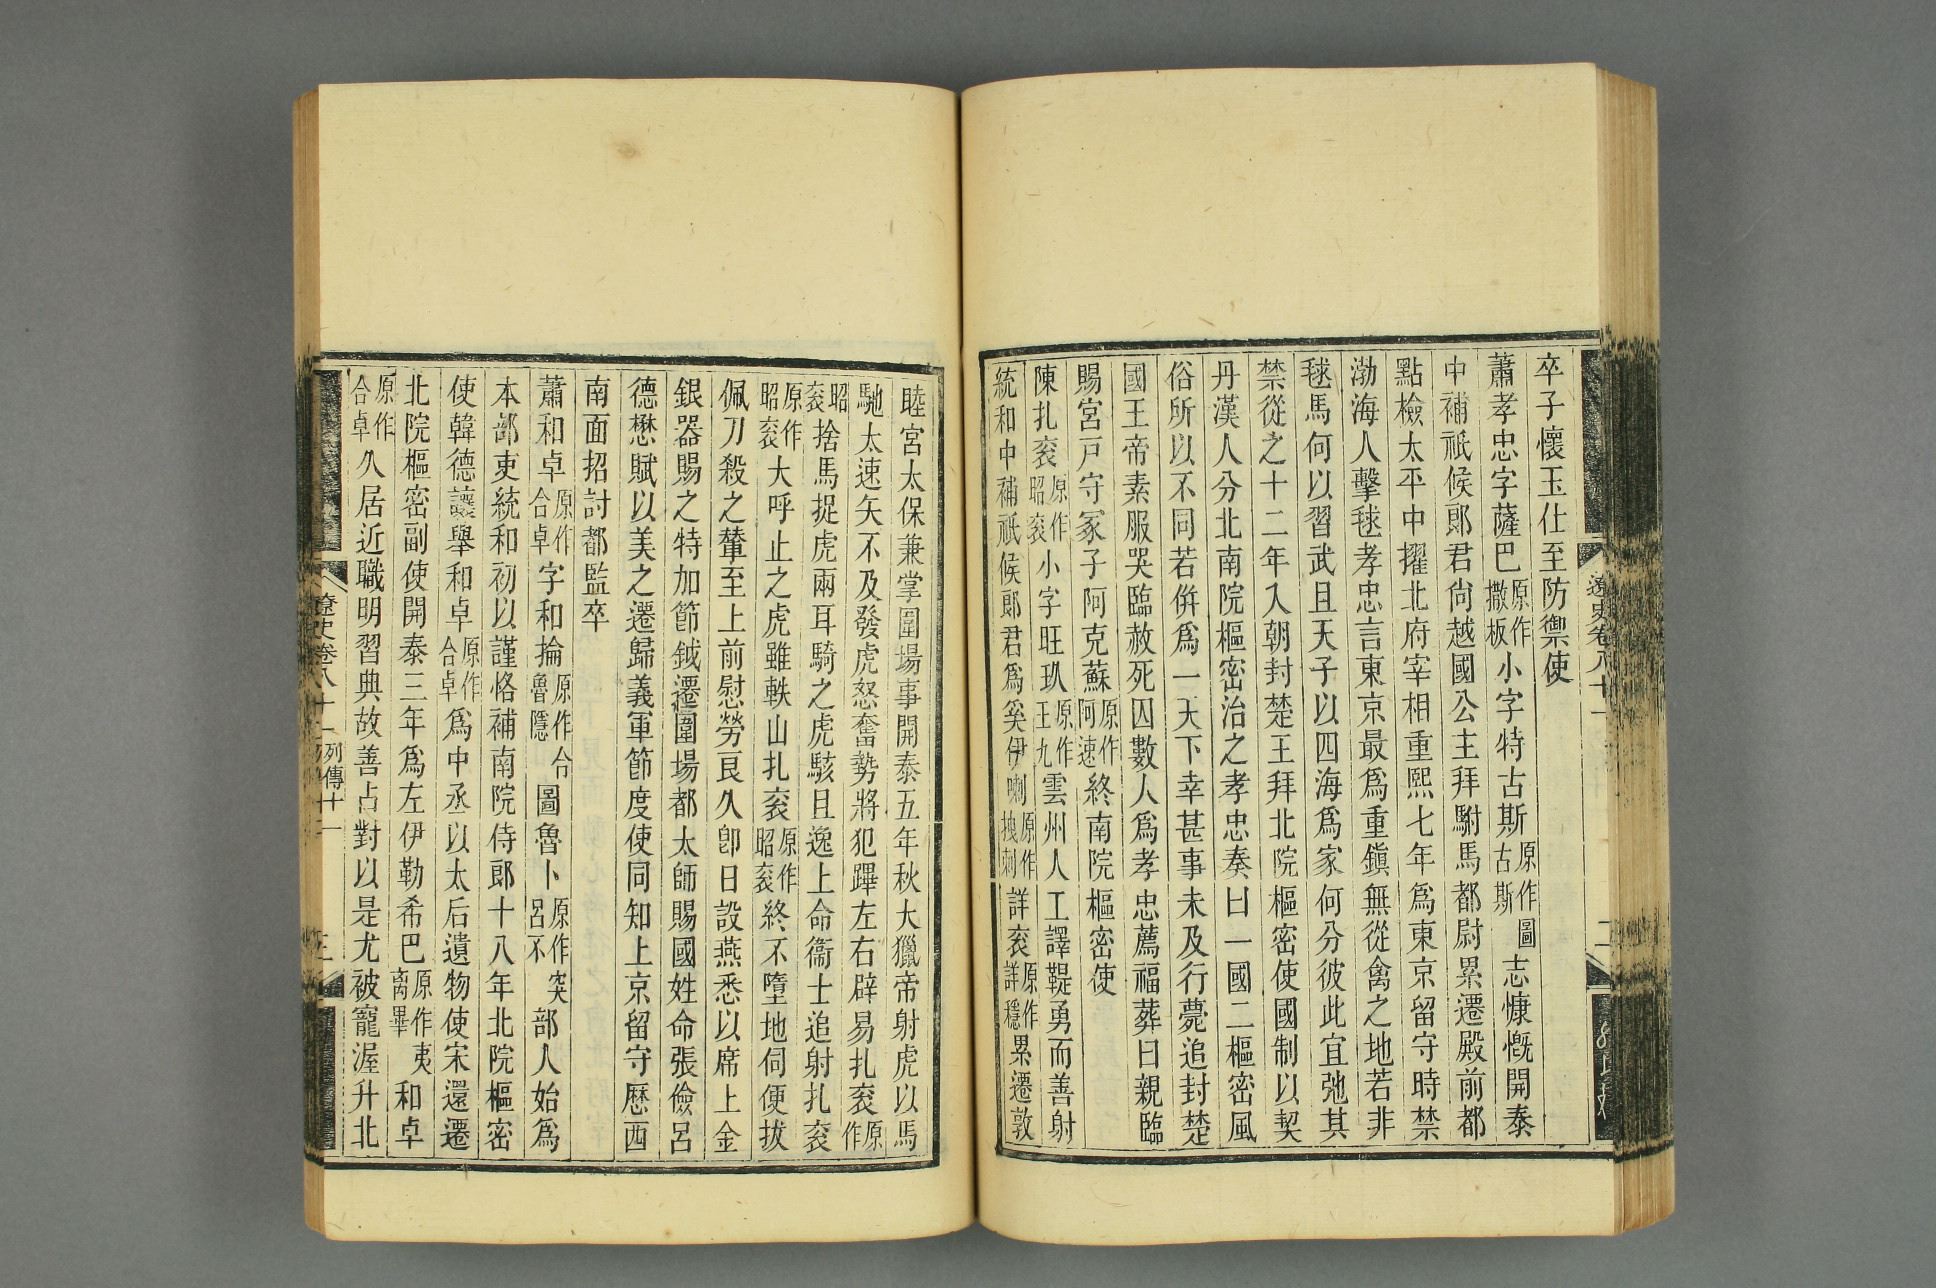 卒子懷玉仕至防禦使
蕭孝忠字薩巴原作撒板小字特古斯原作圖古斯志慷慨開泰
中補祇候郞君尙越國公主拜駙馬都尉累遷殿前都
點檢太平中擢北府宰相重熙七年爲東京留守時禁
渤海人擊毬孝忠言東京最爲重鎭無從禽之地若非
毬馬何以習武且天子以四海爲家何分彼此宜弛其
禁從之十二年入朝封楚王拜北院樞密使國制以契
丹漢人分北南院樞密治之孝忠奏曰一國二樞密風
俗所以不同若併爲一天下幸甚事未及行薨追封楚
國王帝素服哭臨赦死囚數人爲孝忠薦福葬日親臨
賜宮戸守冢子阿克蘇原作阿速終南院樞密使
陳扎袞原作昭袞小字旺玖原作王九雲州人工譯鞮勇而善射
統和中補祇候郞君爲奚伊喇原作拽剌詳袞原作詳穩累遷敦
睦宮太保兼掌圍場事開泰五年秋大獵帝射虎以馬
馳太速矢不及發虎怒奮勢將犯蹕左右辟易扎袞原作
昭袞捨馬捉虎兩耳騎之虎駭且逸上命衞士追射扎袞
原作昭袞大呼止之虎雖軼山扎袞原作昭袞終不墮地伺便拔
佩刀殺之輦至上前慰勞良久卽日設燕悉以席上金
銀器賜之特加節鉞遷圍場都太師賜國姓命張儉呂
德懋賦以美之遷歸義軍節度使同知上京留守歴西
南面招討都監卒
蕭和卓原作合卓字和掄原作合魯隱圖魯卜原作突呂不部人始爲
本部吏統和初以謹恪補南院侍郞十八年北院樞密
使韓德讓舉和卓原作合卓爲中丞以太后遺物使宋還遷
北院樞密副使開泰三年爲左伊勒希巴原作夷离畢和卓
原作合卓久居近職明習典故善占對以是尤被寵渥升北
遼史卷八十一 列傳十一
三
遼史卷八十一
二